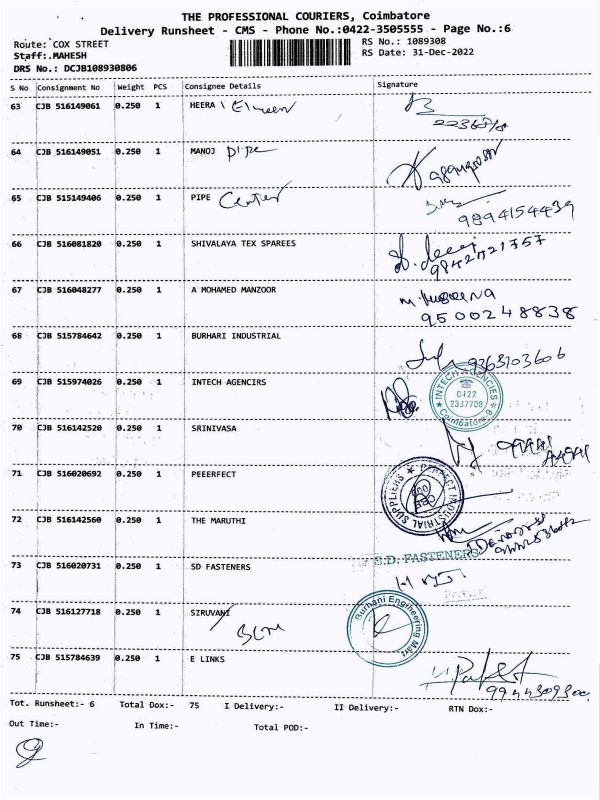 THE PROFESSIONAL COURIERS, Coimbatore
Delivery Runsheet - CMS - Phone No.:0422-3505555 - Page No.:6
Route: COX STREET
RS No.: 1089308
Staff.MAHESH
RS Date: 31-Dec-2022
DRS No.: DCJB108930806
S No Consignment No Weight PCS Consignee Details Signature
63 CJB 516149061 0.250 1 HEERA
64 CJB 516149051 0.250 1 MANOJ Pipe
65 CJB 515149406 0.250 1 PIPE Center
9894154439
66 CJB 516081820 0.250 1 SHIVALAYA TEX SPAREES
67 CJB 516048277 0.250 1 A MOHAMED MANZOOR
9500248838
68 CJB 515784642 0.250 1 BURHARI INDUSTRIAL
9363103606
69 CJB 515974026 0.250 1 INTECH AGENCIRS
INTECH AGENCIES
0422
2347708
Coimbatore-9
70 CJB 516142520 0.250 1 SRINIVASA
71 CJB 516020692 0.250 1 PEEERFECT
PERFECT INDUSTRIAL SUPPLIERS
72 CJB 516142560 0.250 1 THE MARUTHI
73 CJB 516020731 0.250 1 SD FASTENERS
S.D. FASTENERS
74 CJB 516127718 0.250 1 SIRUVANI
Burhani Engineering Mart
75 CJB 515784639 0.250 1 E LINKS
9944309300
Tot. Runsheet:- 6 Total Dox:- 75 I Delivery:- II Delivery:- RTN Dox:-
Out Time:- In Time:- Total POD:-